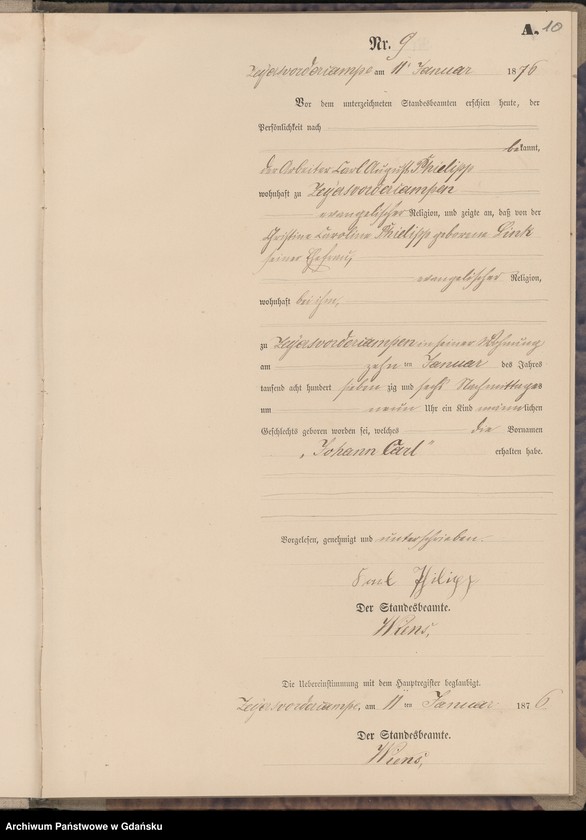 A. 10
Nr. 9
Zeyersvorderkampe am 11 Januar 1876
Vor dem unterzeichneten Standesbeamten erschien heute, der
Persönlichkeit nach
bekannt,
der Arbeiter Carl August Philipp
wohnhaft zu Zeyersvorderkampen
evangelischer Religion, und zeigte an, daß von der
Christine Caroline Philipp geborene
seiner Ehefrau,
evangelischer Religion,
wohnhaft bei ihm,
zu Zeyersvorderkampen in seiner Wohnung
am zehn ten Januar des Jahres
tausend acht hundert sieben zig und sechs Nachmittags
um neun Uhr ein Kind männlichen
Geschlechts geboren worden sei, welches die Vornamen
„Johann Carl“ erhalten habe.
Vorgelesen, genehmigt und unterschrieben.
Carl Philipp
Der Standesbeamte.
Wiens,
Die Uebereinstimmung mit dem Hauptregister beglaubigt.
Zeyersvorderkampe, am 11 ten Januar 1876
Der Standesbeamte.
Wiens,
Archiwum Państwowe w Gdańsku